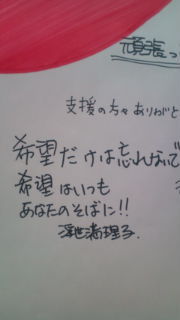 頑張っ
支援の方々ありがと
希望だけは忘れないで
希望はいつも
あなたのそばに!!